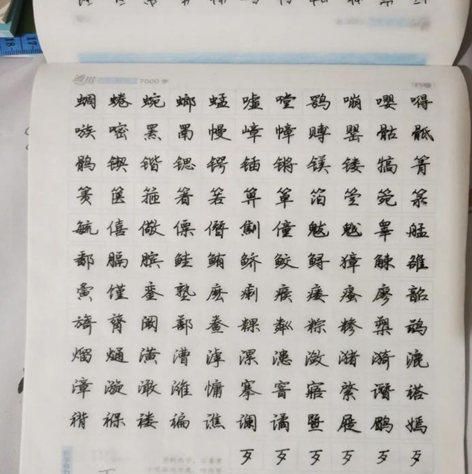 7000字
蜩 蜷 蜿 螂 蜢 嘘 嘡 鹗 嘣 嘤 嘚
嗾 嘧 罴 罱 幔 嶂 幛 赙 罂 骷 骶
鹘 锲 锴 锶 锷 锸 锵 镁 镂 犒 箐
箦 箧 箍 箸 箬 箅 箪 箔 箜 箢 箓
毓 僖 儆 僳 僭 劁 僮 魃 魆 睾 艋
鄱 膈 膑 鲑 鲔 鲚 鲛 鲟 獐 觫 雒
夤 馑 銮 塾 麽 瘌 瘊 瘘 瘙 廖 韶
旖 膂 阚 鄯 鲞 粿 粼 粽 糁 槊 鹚
熘 熥 潢 漕 滹 漯 漶 潋 潴 漪 漉
漳 漩 澉 潍 慵 搴 窨 寤 綮 谮 褡
褙 褓 褛 褊 谯 谰 谲 暨 屣 鹛 嫣
歹 歹 歹 歹 歹